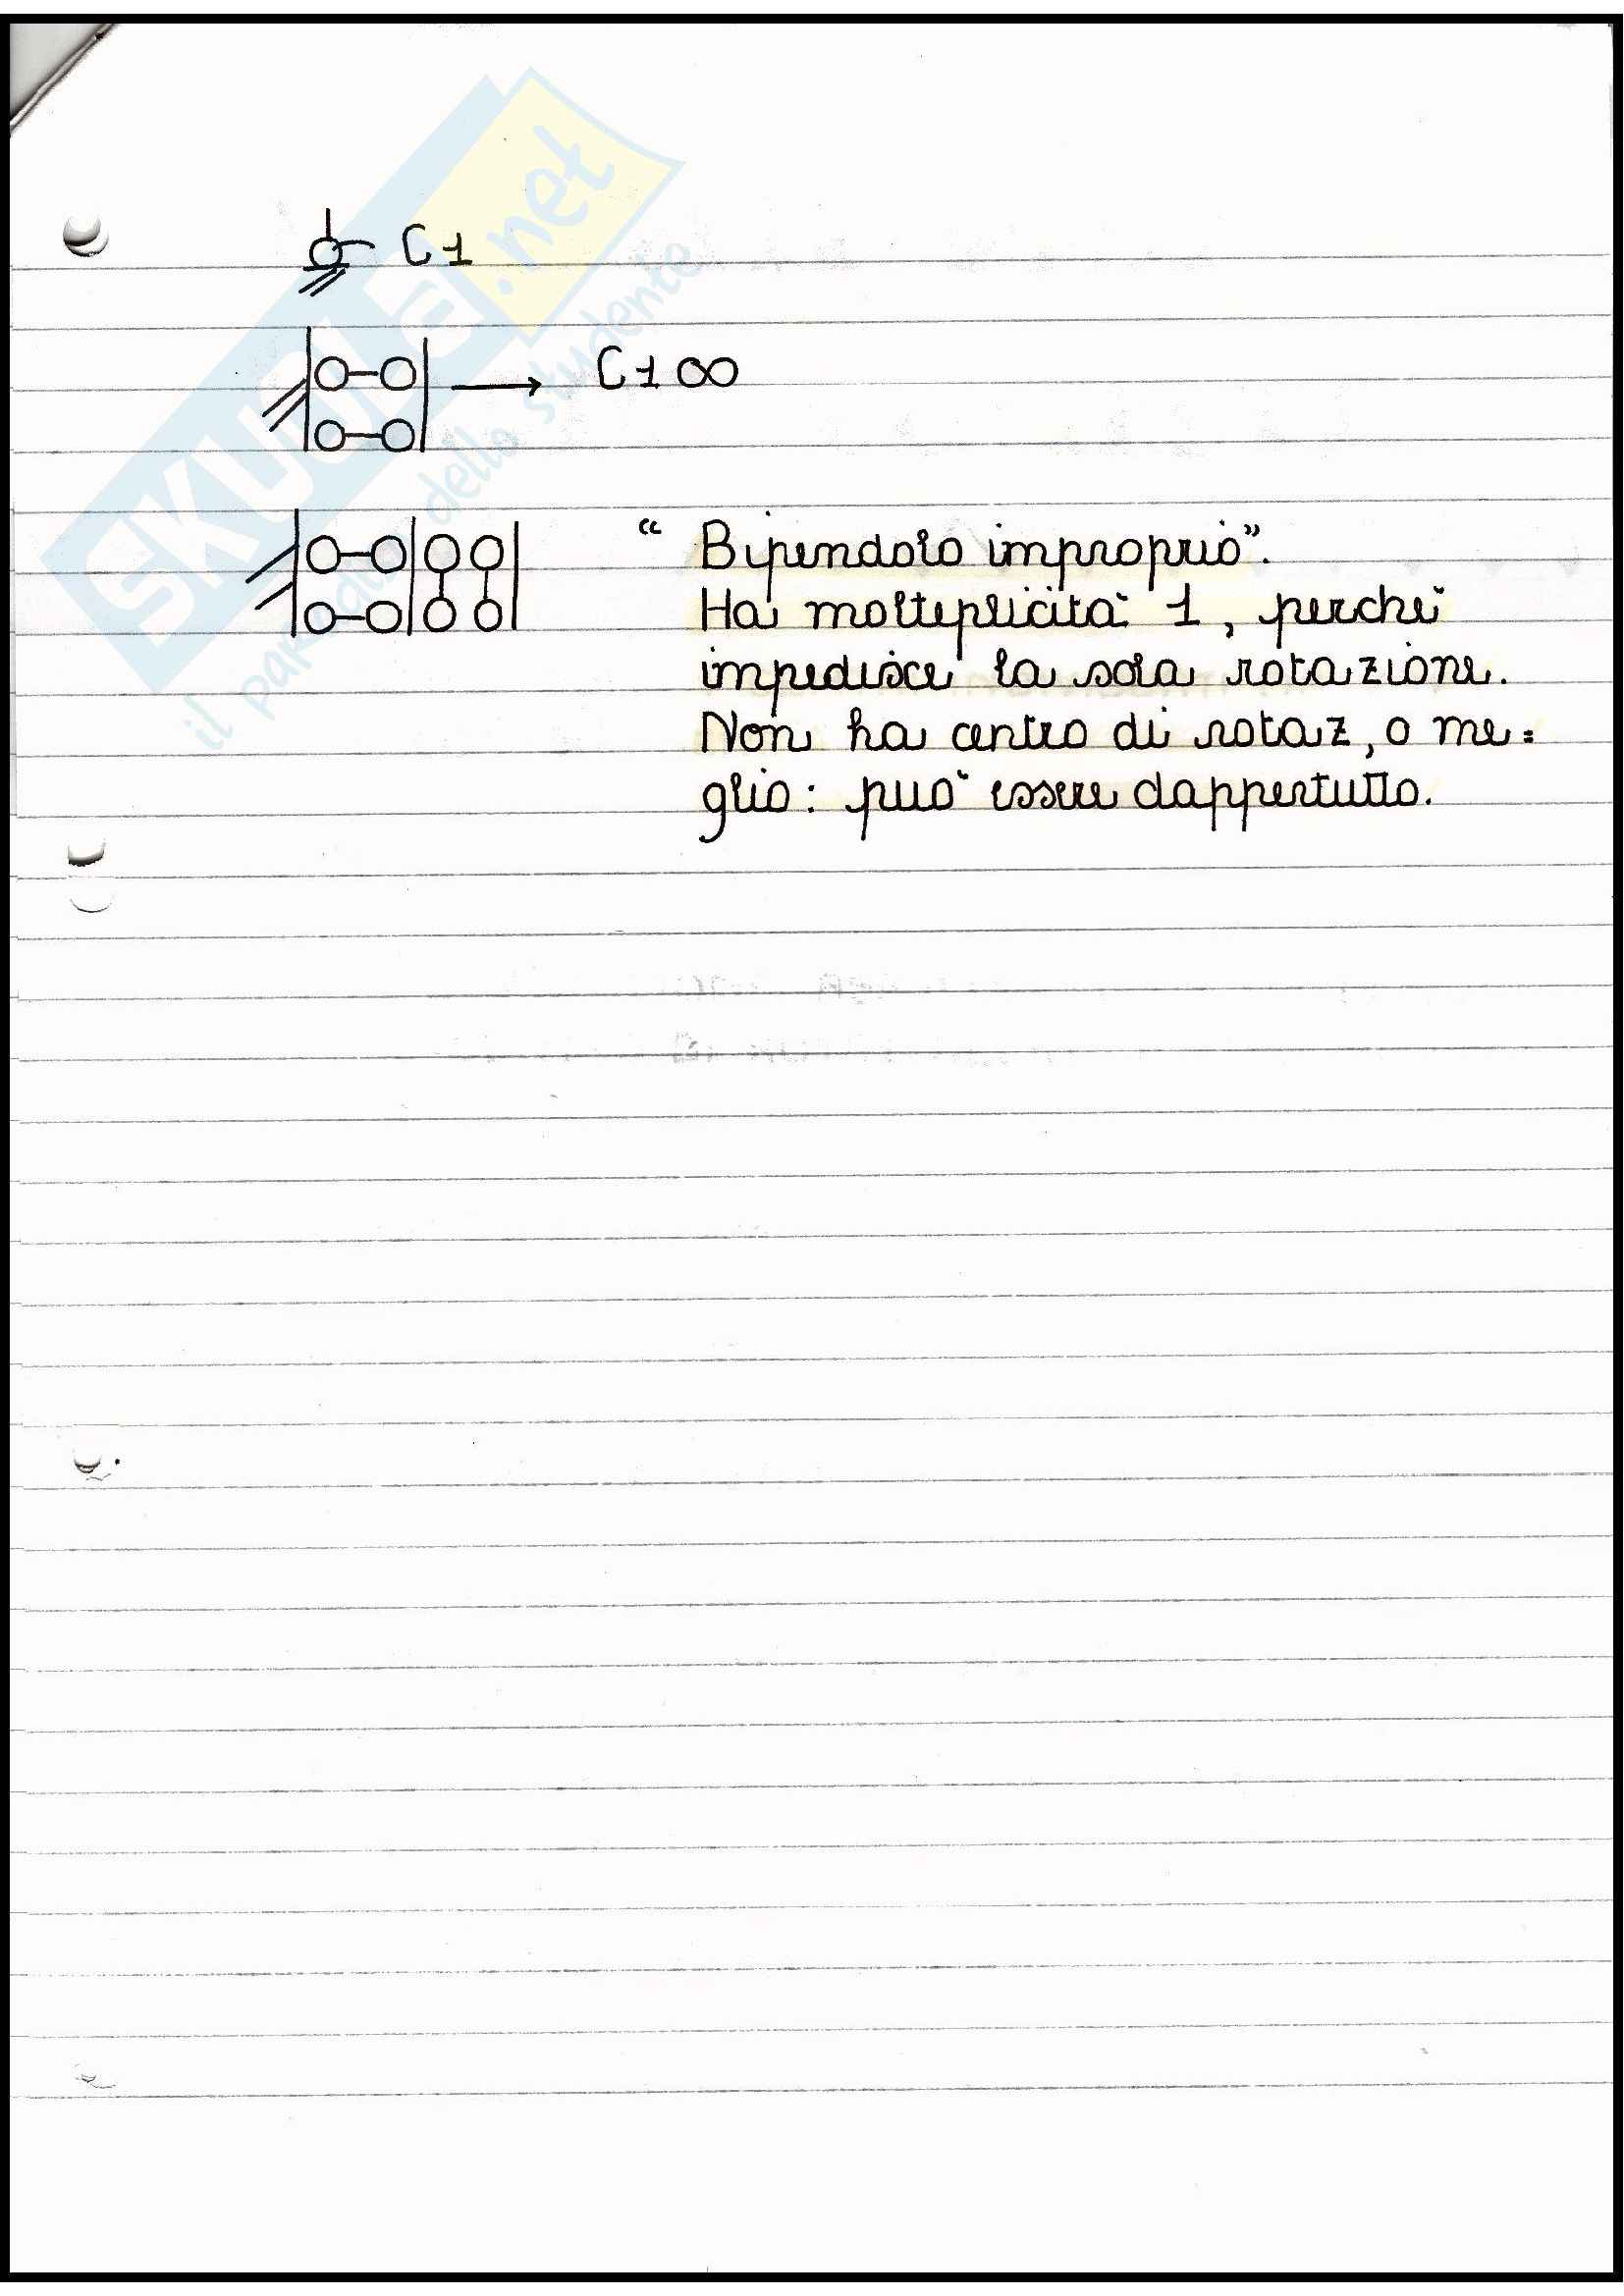 C1
C1∞
“ Bipendolo improprio”.
Ha molteplicità 1, perchè
impedisce la sola rotazione.
Non ha centro di rotaz, o me=
glio: può essere dappertutto.
SKUOLA.net
il portale dello studente